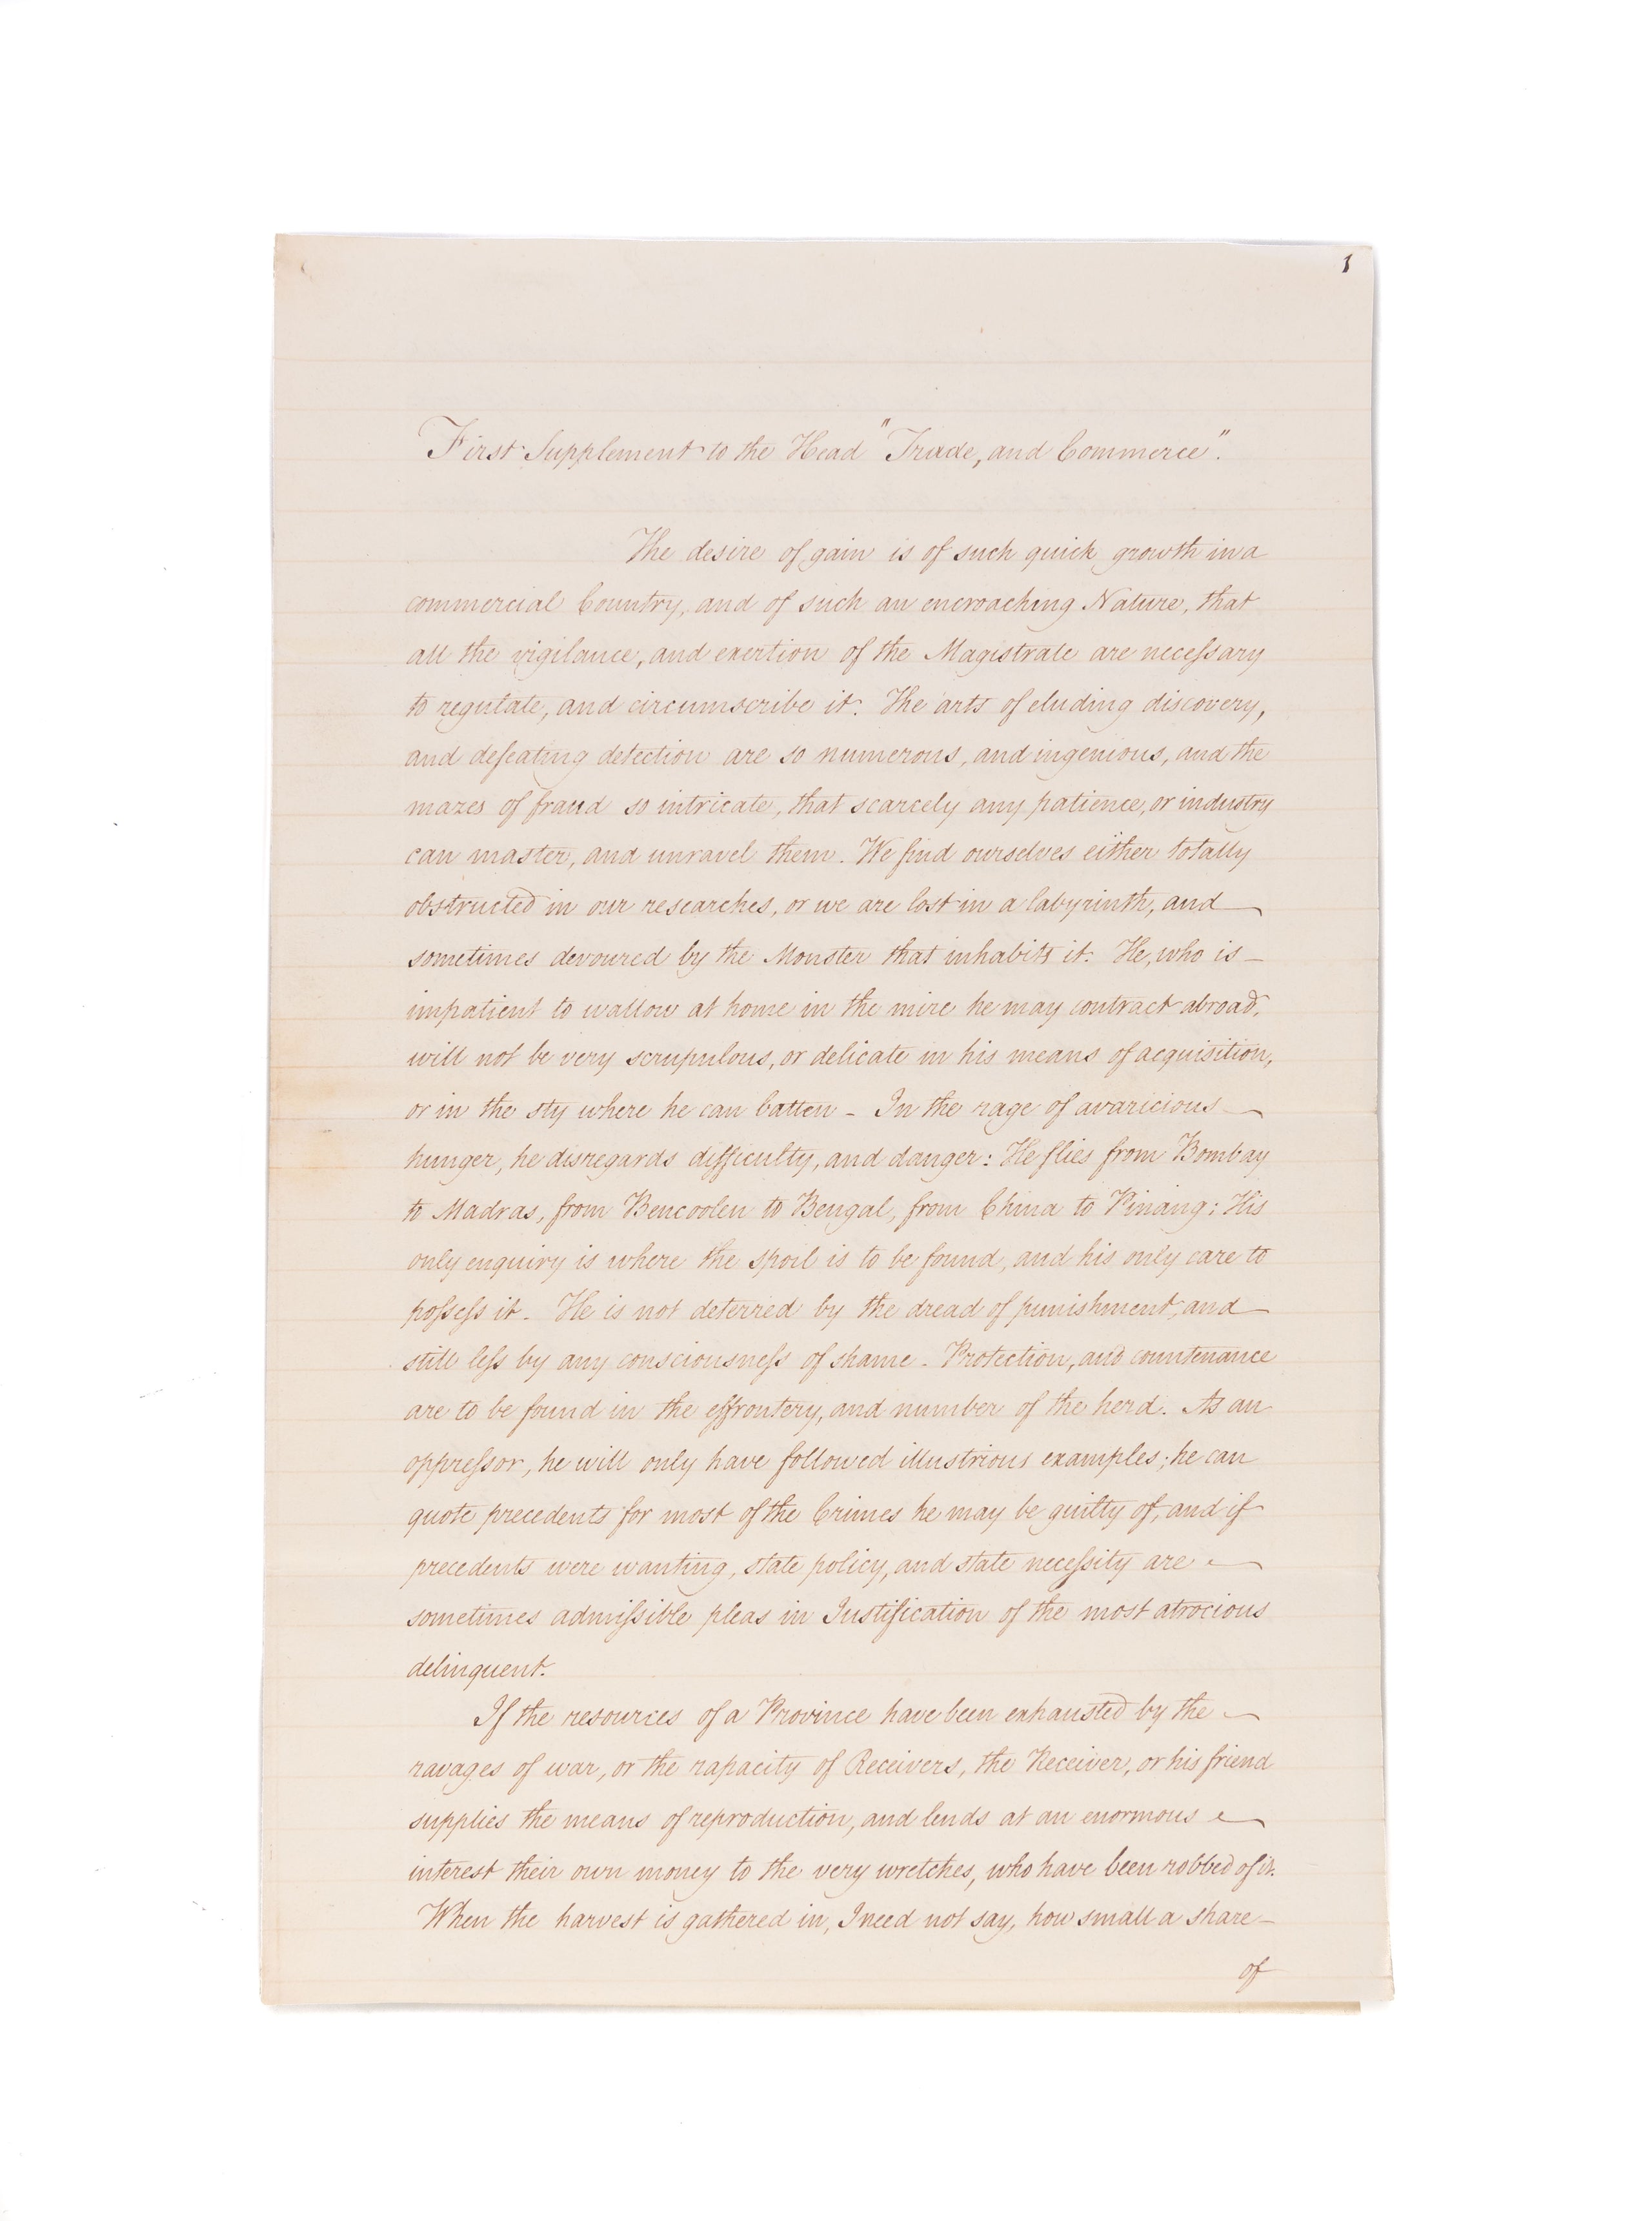 1
First Supplement to the Head "Trade, and Commerce".
The desire of gain is of such quick growth in a
commercial Country, and of such an encroaching Nature, that
all the vigilance, and exertion of the Magistrate are necessary
to regulate, and circumscribe it. The arts of eluding discovery,
and defeating detection are so numerous, and ingenious, and the
mazes of fraud so intricate, that scarcely any patience, or industry
can master, and unravel them. We find ourselves either totally
obstructed in our researches, or we are lost in a labyrinth, and
sometimes devoured by the Monster that inhabits it. He, who is
impatient to wallow at home in the mire he may contract abroad,
will not be very scrupulous, or delicate in his means of acquisition,
or in the sty where he can batten - In the rage of avaricious
hunger, he disregards difficulty, and danger: He flies from Bombay
to Madras, from Bencoolen to Bengal, from China to Pinang: His
only enquiry is where the spoil is to be found, and his only care to
possess it. He is not deterred by the dread of punishment, and
still less by any consciousness of shame. Protection, and countenance
are to be found in the effrontery, and number of the herd. As an
oppressor, he will only have followed illustrious examples; he can
quote precedents for most of the Crimes he may be guilty of, and if
precedents were wanting, state policy, and state necessity are
sometimes admissible pleas in Justification of the most atrocious
delinquent.
If the resources of a Province have been exhausted by the
ravages of war, or the rapacity of Receivers, the Receiver, or his friend
supplies the means of reproduction, and lends at an enormous
interest their own money to the very wretches, who have been robbed of it.
When the harvest is gathered in, I need not say, how small a share
of